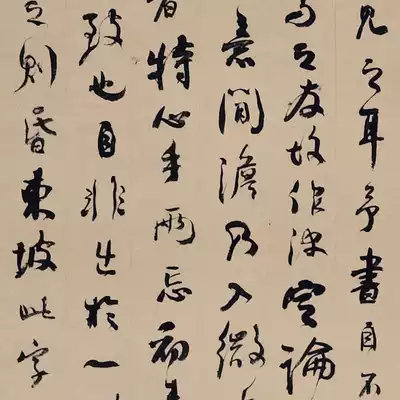 見之耳予書自不
之友故作决定論
意閒澹乃入微
者特心手兩忘初
致也自非出於一
之則昏東坡此字